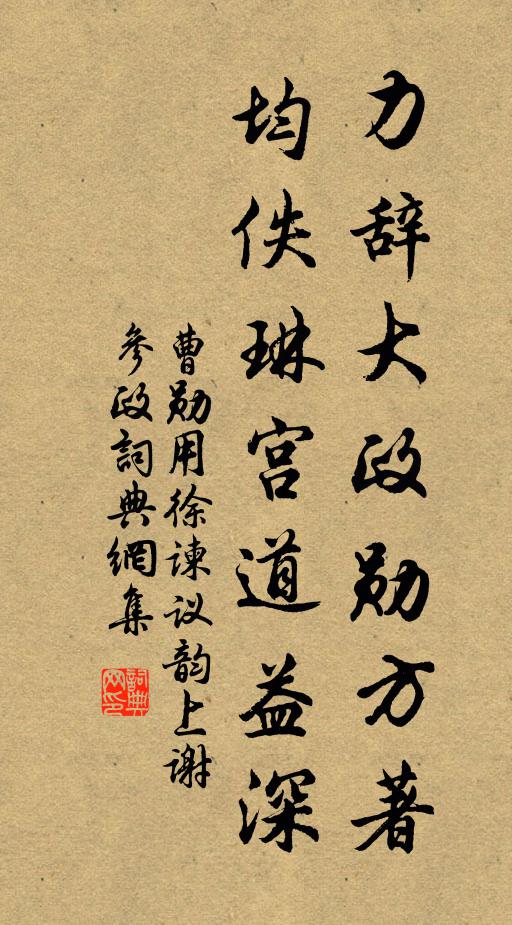 力辞大政勋方著
均佚琳宫道益深
曹勋用徐谏议韵上谢
参政詞典網集
詞典
网印